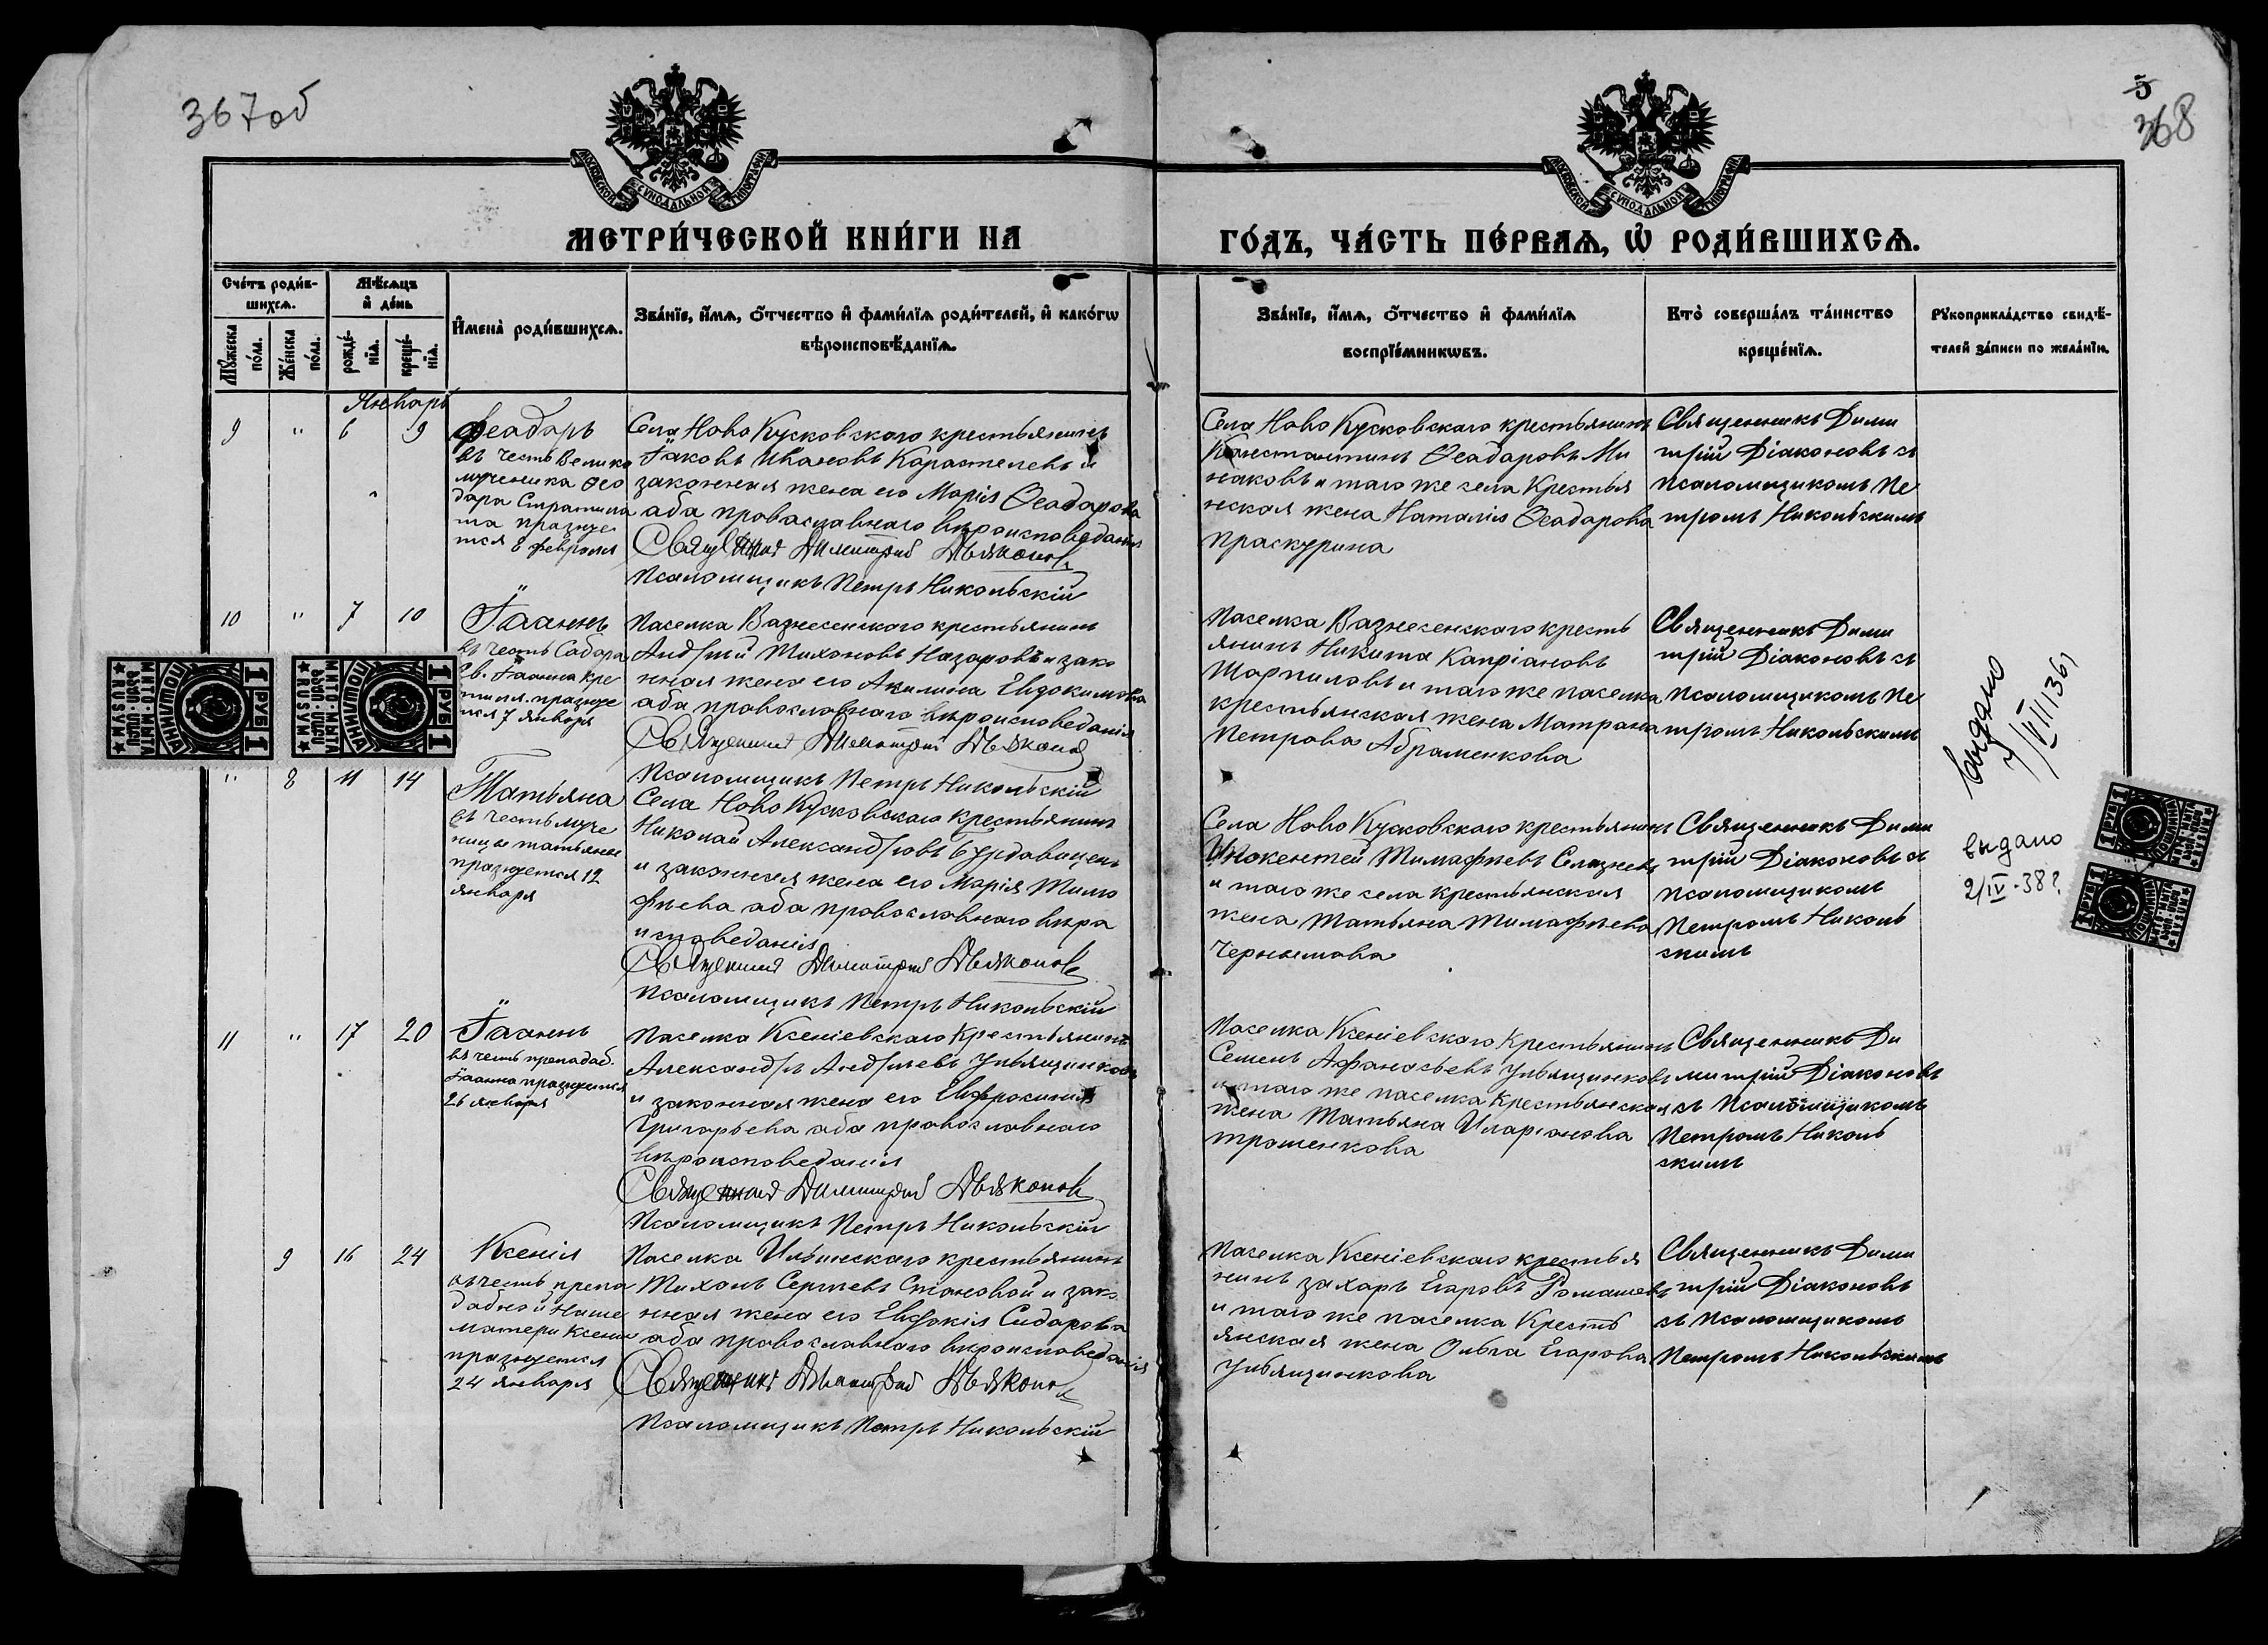 367об
5
368
МОСКОВСКОЙ СѴНОДАЛЬНОЙ ТИПОГРАФІИ
МОСКОВСКОЙ СѴНОДАЛЬНОЙ ТИПОГРАФІИ
МЕТРИ́ЧЕСКОЙ КНИ́ГИ НА
ГО́ДЪ, ЧА́СТЬ ПЕ́РВАѦ, Ѽ РОДИ́ВШИХСѦ.
Сче́тъ роди́в-
шихсѧ.
Мѣ́сѧцъ
и҆ де́нь
Мꙋ́жеска
по́ла.
Же́нска
по́ла.
рожде́-
нїѧ.
креще́-
нїѧ.
И҆мена̀ роди́вшихсѧ.
Зва́нїе, и҆́мѧ, ѻ҆́тчество и҆ фами́лїѧ роди́телей, и҆ како́гѡ
вѣроисповѣ́данїѧ.
Зва́нїе, и҆́мѧ, ѻ҆́тчество и҆ фами́лїѧ
воспрїе́мникѡвъ.
Кто̀ соверша́лъ та́инство
креще́нїѧ.
Рꙋкоприкла́дство свидѣ́-
телей за́писи по жела́нїю.
Январь
9 " 6 9
Феадоръ
въ честь Велико
мученика Фео
дора Стратила
та празнуе
тся 8 февраля
Села Ново Кусковскаго крестьянинъ
Іаковъ Ивановъ Карастелевъ и
законная жена его Марія Феадорова
аба провасуавнаго вѣроисповеданія
Священник Димитрий Дьяконов
Псаломщикъ Петръ Никольскій
Села Ново Кусковскаго крестьянинъ
Констонтинъ Феадоровъ Ми
наковъ и таго же села Крестья
нская жена Наталія Феадорова
Праскурина
Священникъ Дими
трій Діаконовъ съ
псаломщикомъ Пе
тромъ Никольскимъ
10 " 7 10
Іааннъ
въ честь Сабора
Св. Іаанна Кре
тителя празнуе
тся 7 января
Паселка Вазнесенского крестьянинъ
Андрей Тихоновъ Назаровъ и зако
нная жена его Акилина Евдокимова
аба православнаго вѣроисповеданія
Священник Димитрий Дьяконов
Псаломщикъ Петръ Никольскій
Паселка Вазнесенскаго кресть
янинъ Никита Капріановъ
Шарпиловъ и таго же паселка
крестьянская жена Матрана
Петрова Абраменкова
Священникъ Дими
трій Діаконовъ съ
псаломщикомъ Пе
тромъ Никольскимъ
выдано
7/VIII 36
" 8 11 14
Татьяна
въ честь муче
ницы татьяны
празнуется 12
января
Села Ново Кусковскаго крестьянинъ
Николай Александровъ Бурдавицынъ
и законная жена его Марія Тимо
фѣева аба православнаго вѣро
исповеданія
Священник Димитрий Дьяконов
Псаломщикъ Петръ Никольскій
Села Ново Кусковскаго крестьянинъ
Инокентей Тимафѣевъ Селезневъ
и таго же села крестьянская
жена Татьяна Тимафѣева
Чернышова
Священникъ Дими
трій Діаконовъ съ
псаломщикомъ
Петромъ Николь
скимъ
выдано
2/IV-38г
11 " 17 20
Іааннъ
въ честь препадаб.
Іаанна празнуется
26 января
Паселка Ксеніевскаго Крестьянинъ
Александръ Андрѣевъ Ульященковъ
и законная жена его Евфросинія
Григорьева аба православнаго
вѣроисповеданія
Священник Димитрий Дьяконов
Псаломщикъ Петръ Никольскій
Паселка Ксеніевскаго Крестьянинъ
Семенъ Афанасьевъ Ульященковъ
и таго же паселка Крестьянская
жена Татьяна Иларіанова
трошенкова
Священникъ Ди
митрій Діаконовъ
съ Псаломщикомъ
Петромъ Николь
скимъ
9 16 24
Ксенія
въ честь препа
дабной Наше
матери Ксении
празнуется
24 января
Паселка Ильинскаго крестьянинъ
Тихонъ Сергѣевъ Становой и зако
нная жена его Евдокія Сидарова
аба православнаго вѣроисповеданія
Священникъ Димитрий Дьяконов
Псаломщикъ Петръ Никольскій
Паселка Ксеніевскаго крестья
нинъ захаръ Егоровъ Ромашевъ
и таго же паселка Кресть
янская жена Ольга Егорова
Ульященкова
Священникъ Дими
трій Діаконовъ
съ Псаломщикомъ
Петромъ Никольскимъ
1 РУБ 1
ПОШЛИНА
1 РУБ 1
ПОШЛИНА